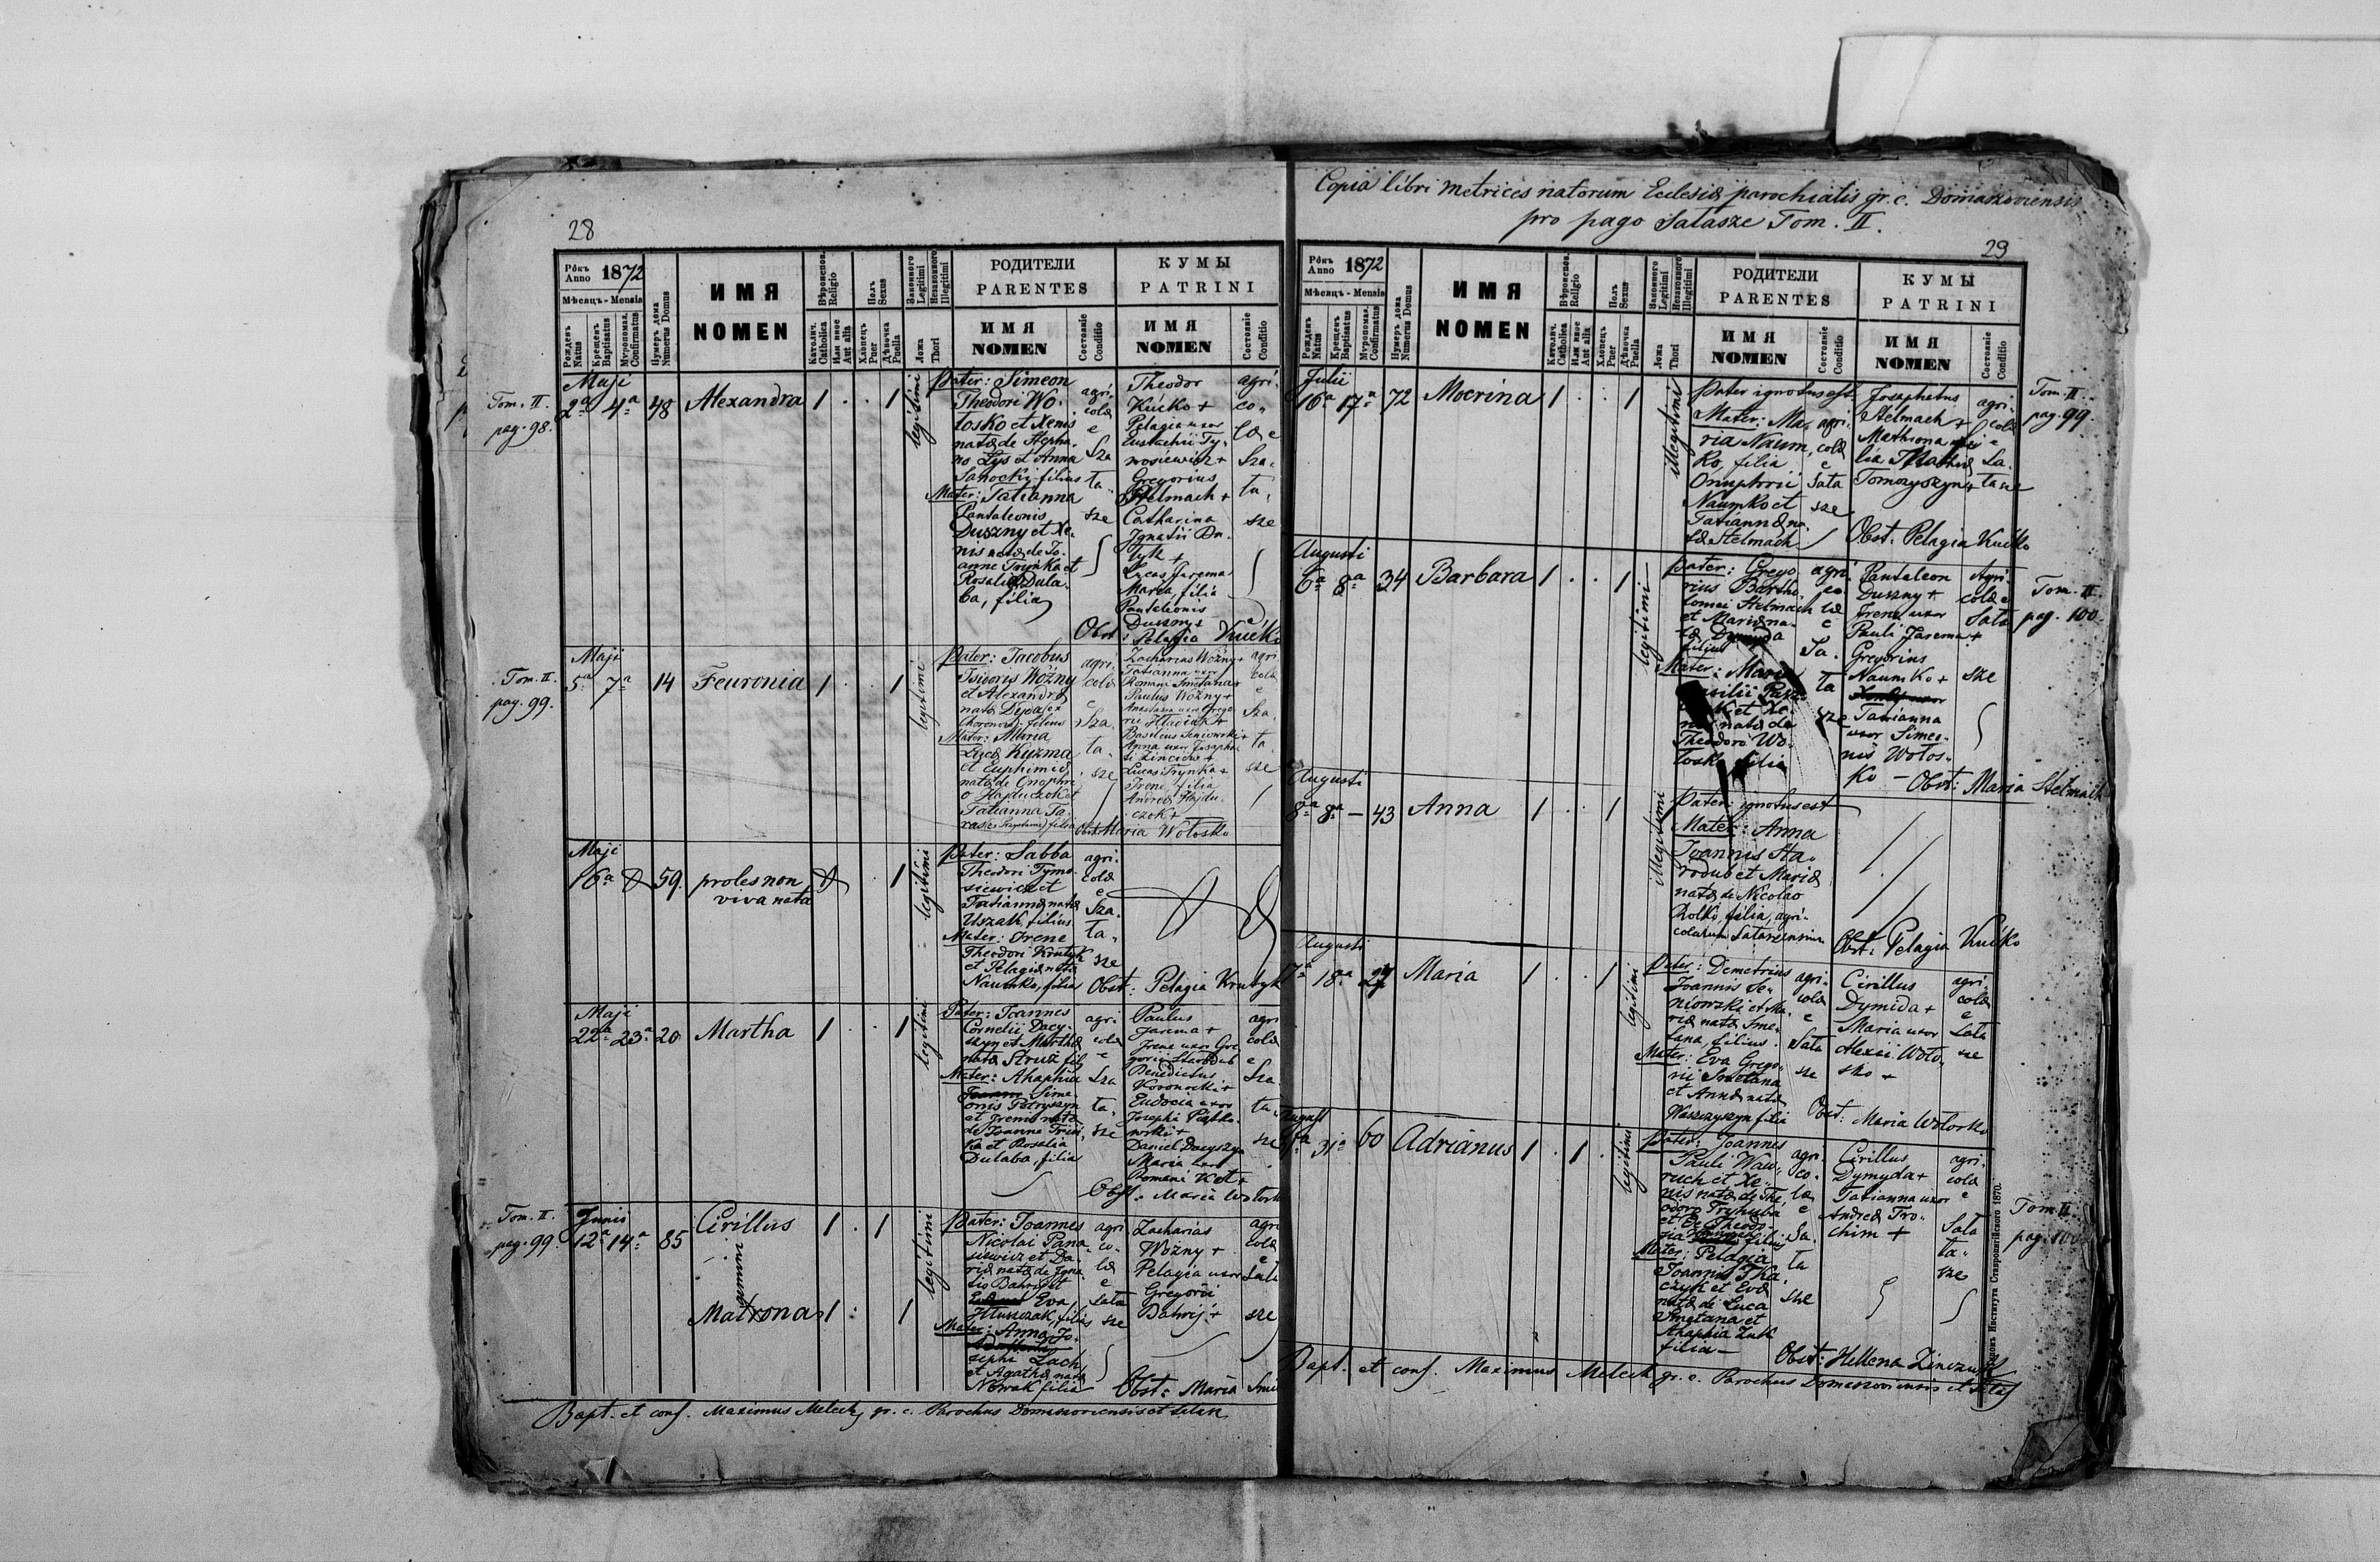 28
Рокъ Anno 1872
Мѣсяцъ - Mensis
Рожденъ Natus
Крещенъ Baptisatus
Мѵропомаз. Confirmatus
Нумеръ дома Numerus Domus
ИМЯ
NOMEN
Вѣроисповѣд. Religio
Католич. Catholica
Или иное Aut alia
Полъ Sexus
Хлопецъ Puer
Дѣвочка Puella
Законного Legitimi
Незаконного Illegitimi
Ложа Thori
РОДИТЕЛИ
PARENTES
ИМЯ
NOMEN
Состояніе Conditio
КУМЫ
PATRINI
ИМЯ
NOMEN
Состояніе Conditio
Tom. II.
pag. 98.
Maji
2a 4a 48 Alexandra 1 . . 1 legitimi
Pater: Simeon
Theodori Wo-
łosko et Xenis
natæ de Stepha-
no Łys et Anna
Sanocky filius
Mater: Tatianna
Pantaleonis
Duszny et Xe-
nis natæ de Jo-
anne Trynka et
Rosalia Dula-
ba, filia
agri-
colæ
e
Sza
ta-
sze
Theodor
Kućko +
Pelagia uxor
Eustachii Ty-
mosiewicz +
Gregorius
Stelmach +
Catharina
Ignatii Du-
tyk +
Lucas Jarema
Maria, filia
Pantaleonis
Duszny
agri-
co-
læ e
Sza-
ta-
sze
Obst: Pelagia Kućko
Tom. II.
pag. 99.
Maji
5a 7a 14 Feuronia 1 . . 1 legitimi
Pater: Jacobus
Isidoris Woźny
et Alexandra
nata Dyda (ex
Choronow) filius
Mater: Maria
Lucæ Kuzma
et Euphimiæ
natæ de Onophri-
o Hajduczok et
Tatianna Ta-
ras filia
agri-
colæ
e
Sza
ta-
sze
Zacharias Woźny +
Tatianna uxor
Romani Smetana +
Paulus Woźny +
Anastasia uxor Grego-
rii
Basilius Seniowski +
Anna uxor Josapha-
ti Zinciów +
Lucas Trynka +
Irene, filia
Andreæ Hajdu-
czok +
agri
colæ
e
Sza-
ta-
sze
Obst: Maria Wołosko
Maji
16a 59. proles non
viva nata
1 legitimi
Pater: Sabba
Theodori Tymo-
siewicz et
Tatiannæ natæ
Uszak filius
Mater: Irene
Theodori Krutyk
et Pelagiæ natæ
Naumko, filia
agri-
colæ
e
Sza-
ta-
sze
Obst: Pelagia Krutyk
Maji
22a 23a 20 Martha 1 . . 1 legitimi
Pater: Joannes
Cornelii Dacy-
szyn et Marthæ
natæ Struż fil.
Mater: Ahaphia
Sime-
onis Petryszyn
et Irene natæ
de Joanne Trin-
ka et Rosalia
Dulaba, filia
agri
colæ
e
Sza
ta-
sze
Paulus
Jarema +
Irene uxor Gre
gorii Starodub
Benedictus
Koronowski +
Eudocia uxor
Josephi Pabko-
wski +
Daniel Dacyszyn
Maria uxor
Romani Kot +
agri
colæ
e
Sza
ta-
sze
Obst: Maria Wołosko
Tom. II.
pag. 99
Junii
12a 14a 85 Cirillus 1 . 1 legitimi
gemini
Matrona 1 : 1
Pater: Joannes
Nicolai Pana-
siewicz et Da-
riæ natæ de Igna-
tio Bahrij et
Eva
Hłuszczak, filius
Mater: Anna Jo-
sephi Lach
et Agathæ natæ
Nowak filia
agri
co-
læ
e
Sata
sze
Zacharias
Woźny +
Pelagia uxor
Gregorii
Bahrij +
agri
colæ
e
Sata
sze
Obst: Maria
Bapt. et conf. Maximus Melech, gr. c. Parochus Domaszoviensis et Satasz
Copia libri metrices natorum Ecclesiæ parochialis gr. c. Domaszoviensis
pro pago Satasze Tom. II.
29
Рокъ Anno 1872
Мѣсяцъ - Mensis
Рожденъ Natus
Крещенъ Baptisatus
Мѵропомаз. Confirmatus
Нумеръ дома Numerus Domus
ИМЯ
NOMEN
Вѣроисповѣд. Religio
Католич. Catholica
Или иное Aut alia
Полъ Sexus
Хлопецъ Puer
Дѣвочка Puella
Законного Legitimi
Незаконного Illegitimi
Ложа Thori
РОДИТЕЛИ
PARENTES
ИМЯ
NOMEN
Состояніе Conditio
КУМЫ
PATRINI
ИМЯ
NOMEN
Состояніе Conditio
Julii
16a 17a 72 Mocrina 1 . . 1 illegitimi
Pater ignotus est
Mater: Ma-
ria Naum-
ko, filia
Onuphrii
Naumko et
Tatiannæ na-
tæ Stelmach
agri-
colæ
e
Sata
sze
Josaphatus
Stelmach +
Mathrona
Tomoryszyn +
agri-
colæ
e
Sa-
tasze
Obst: Pelagia Kućko
Tom. II.
pag. 99.
Augusti
6a 8a 34 Barbara 1 . . 1 legitimi
Pater: Grego-
rius Bartho-
lomei Stelmach
et Mariæ na-
tæ Dymida
filius
Mater: Maria
Basilii
et Xe-
nis natæ de
Theodoro Wo-
łosko filia
agri
co
læ
e
Sa-
ta
sze
Pantaleon
Duszny +
Irene uxor
Pauli Jarema +
Gregorius
Naumko +
Tatianna
uxor Simeo-
nis Wołos-
ko
Agri-
colæ e
Sata
sze
Obst: Maria Stelmach
Tom. II.
pag. 100.
Augusti
8a 8a - 43 Anna 1 . . 1 illegitimi
Pater: ignotus est
Mater: Anna
Joannis Sta-
rodub et Mariæ
natæ de Nicolao
Rolko, filia, agri-
colarum Sataszensium
Obst: Pelagia Kućko
Augusti
17a 18a 27 Maria 1 . . 1 legitimi
Pater: Demetrius
Joannis Se-
niowski et Ma-
riæ natæ Sme-
tana, filius
Mater: Eva Grego-
rii Smetana
et Annæ natæ
Waszczyszyn filia
agri-
colæ
e
Sata
sze
Cirillus
Dymida +
Maria uxor
Alexii Woło-
sko +
agri-
colæ
e
Sata
sze
Obst: Maria Wołosko
August
31a 60 Adrianus 1 . 1 . legitimi
Pater: Joannes
Pauli Waw-
ruch et Xe-
nis natæ de The-
odoro Tryhuba
et Theodo-
sia filius
Mater: Pelagia
Joannis Tka-
czyk et Evæ
natæ de Luca
Smetana et
Ahaphia Żuk
filia -
agri-
co-
læ
e
Sa-
ta
sze
Cirillus
Dymyda +
Tatianna uxor
Andreæ Tro-
chim +
agri-
colæ
e
Sata
ta-
sze
Obst: Hellena Zinczuk
Tom II.
pag. 100
Bapt. et conf. Maximus Melech gr. c. Parochus Domaszoviensis et Satasz
Института Ставропигійского 1870.